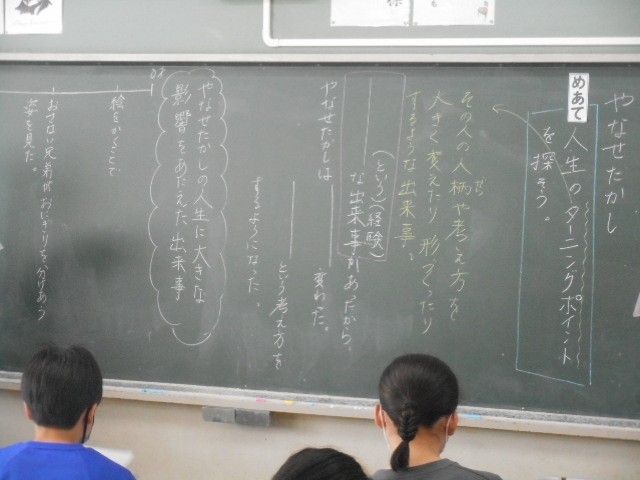 やなせたかし
めあて
人生のターニングポイント
を探そう。
その人の人柄や考え方を
ぜ
大きく変えたり 形づくったり
するような出来事。
(という)(経験)
な出来事があったから、
やなせたかしは
変わった。
という考え方を
するようになった。
やなせたかしの人生に大きな
影響をあたえた出来事
0才
絵をかくことで
おさない兄弟がおにぎりを分けあう
姿を見た。